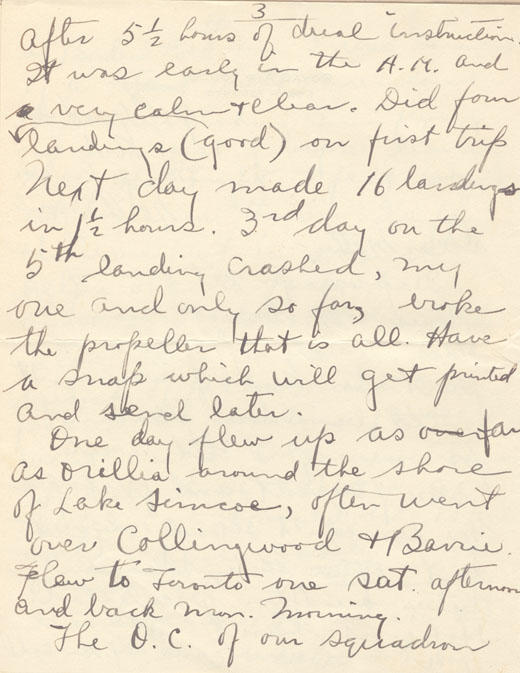 3
after 5 1/2 hours of dual instruction.
It was early in the A.M. and
a very calm + clear. Did four
landings (good) on first trip
Next day made 16 landings
in 1 1/2 hours. 3rd day on the
5th landing crashed, my
one and only so far, broke
the propeller that is all. Have
a snap which will get printed
and send later.
One day flew up as over far
as Orillia around the shore
of Lake Simcoe, often went
over Collingwood + Barrie.
Flew to Toronto one sat. afternoon
and back mon. Morning.
The O.C. of our squadron